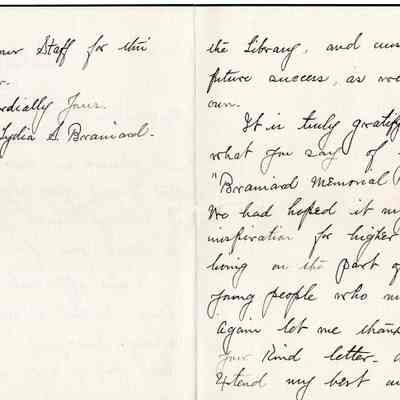 Staff for this
Yours.
Lydia S. Brainard.
the Library, and
future success, as
own.
It is truly
what you say of
"Brainard Memorial
We had hoped it
inspiration for higher
living on the part of
young people who
Again let me thank
your kind letter – 
Extend my best